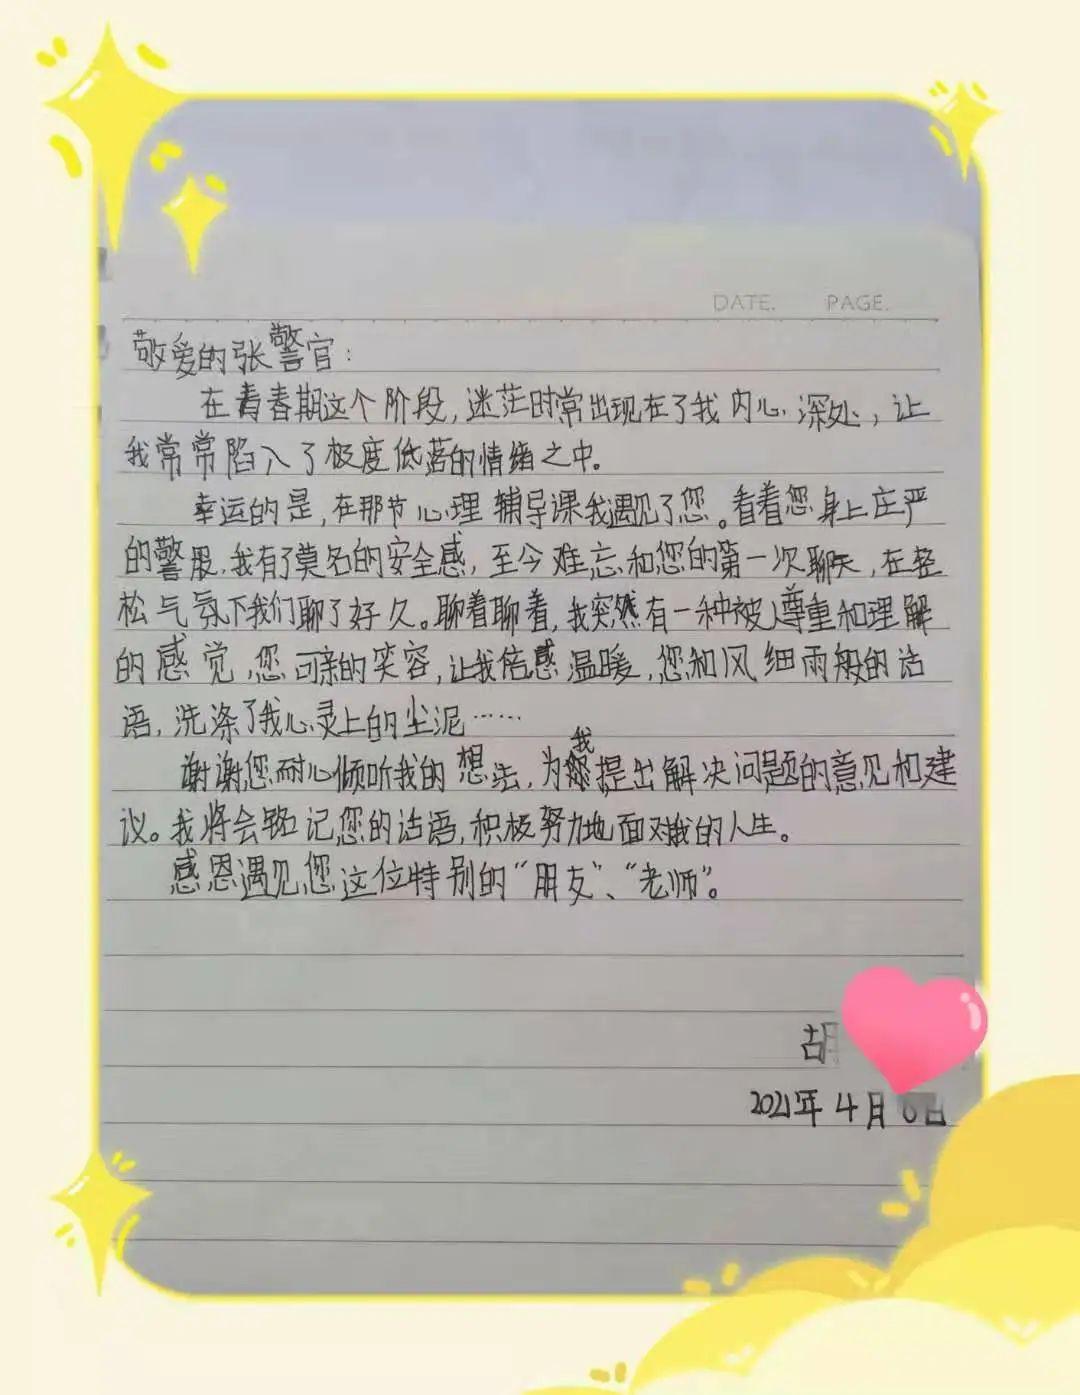 DATE. PAGE.
敬爱的张警官:
在青春期这个阶段,迷茫时常出现在了我内心深处,让
我常常陷入了极度低落的情绪之中。
幸运的是,在那节心理辅导课我遇见了您。看着您身上庄严
的警服,我有了莫名的安全感,至今难忘和您的第一次聊天,在轻
松气氛下我们聊了好久。聊着聊着,我突然有一种被人尊重和理解
的感觉,您可亲的笑容,让我倍感温暖,您和风细雨般的话
语,洗涤了我心灵上的尘泥……
谢谢您耐心倾听我的想法,为我提出解决问题的意见和建
议。我将会铭记您的话语,积极努力地面对我的人生。
感恩遇见您这位特别的“朋友”、“老师”。
胡
2021年4月 日